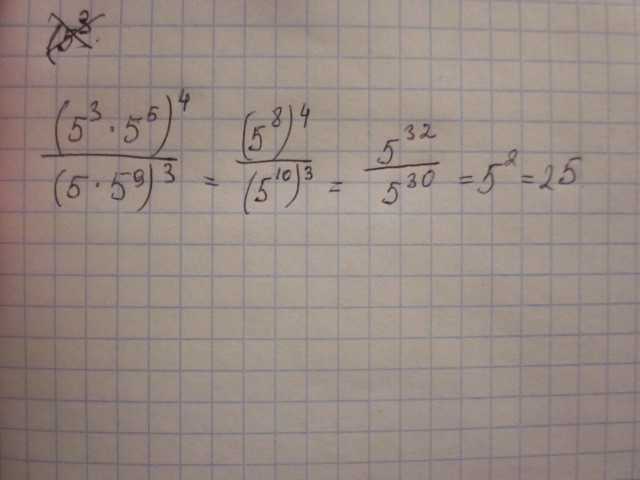 (5³
(5³ · 5⁵)⁴ / (5 · 5⁹)³ = (5⁸)⁴ / (5¹⁰)³ = 5³² / 5³⁰ = 5² = 25